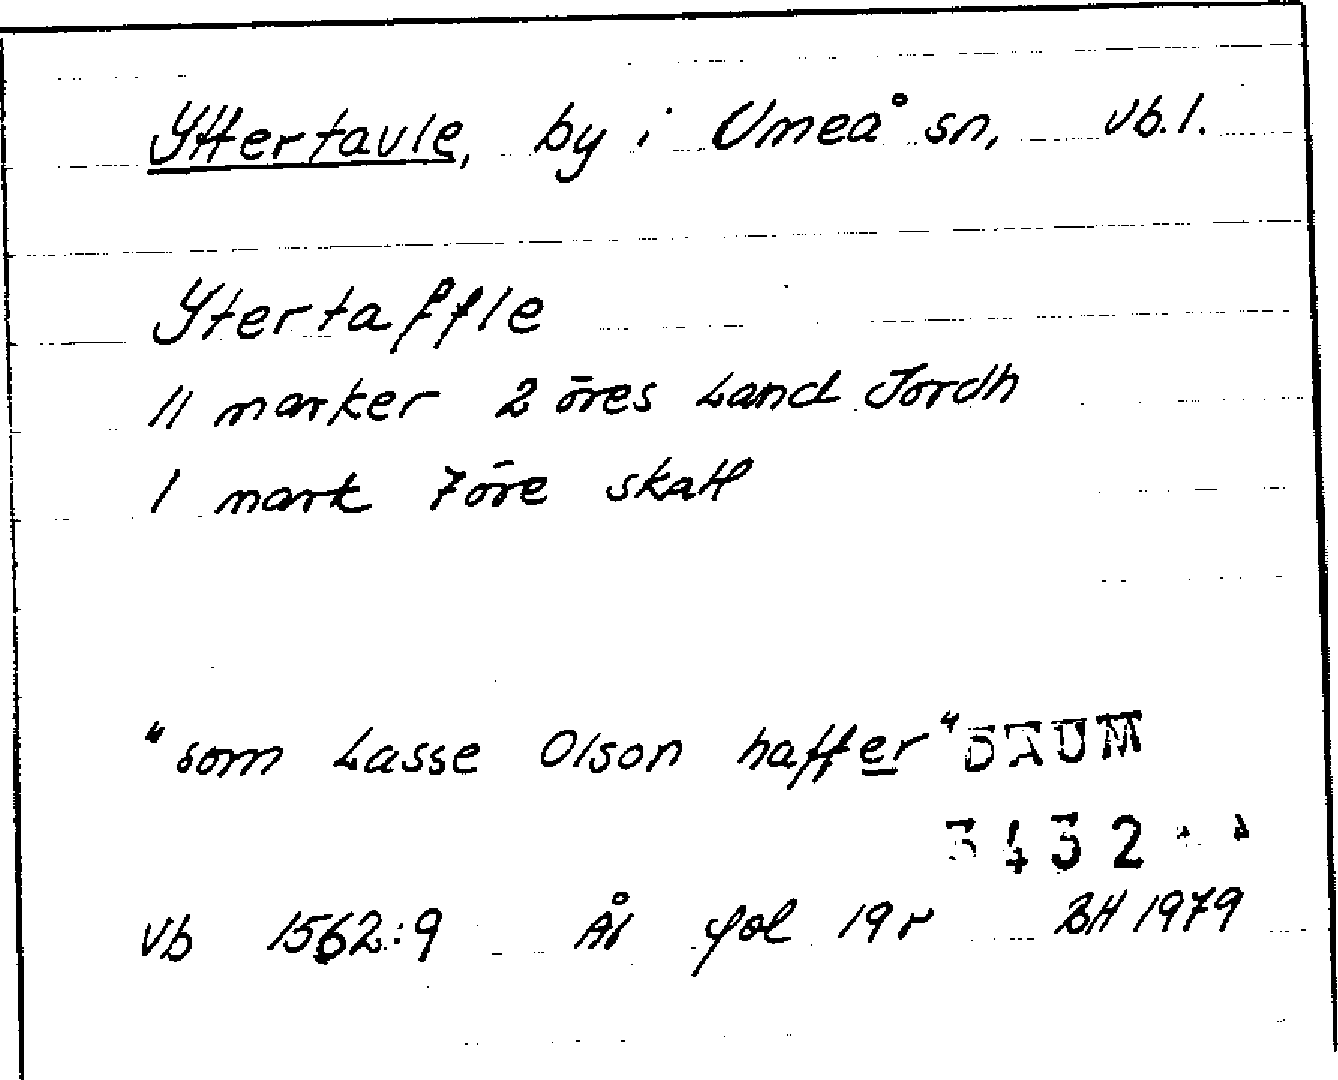 Yttertavle, by i Umeå sn, Vb.l.
Ytertaffle
11 marker 2 öres Land Jordh
1 mark 7 öre skatt
"som Lasse Olson haffer" DAUM
3432
Vb 1562:9 Ål fol 19 r BH 1979